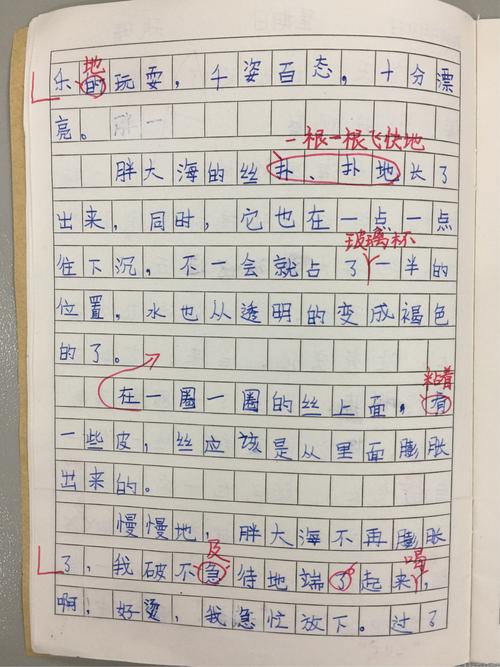 地
乐的玩耍，千姿百态，十分漂
亮。
一根一根飞快地
胖大海的丝扑、扑地长了
出来，同时，它也在一点一点
玻璃杯
往下沉，不一会就占了一半的
位置，水也从透明的变成褐色
的了。
粘着
在一圈一圈的丝上面，有
一些皮，丝应该是从里面膨胀
出来的。
慢慢地，胖大海不再膨胀
及 喝
了，我破不急待地端了起来，
啊，好烫，我急忙放下。过了